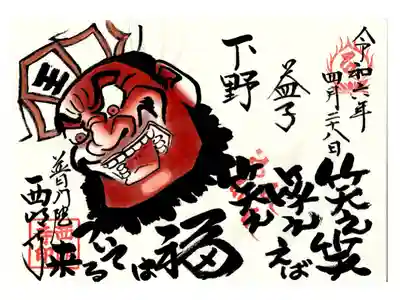 令和六年
四月二八日
益子
下野
王
笑え笑
笑えば
笑え
福
は
来
普門院
西明寺